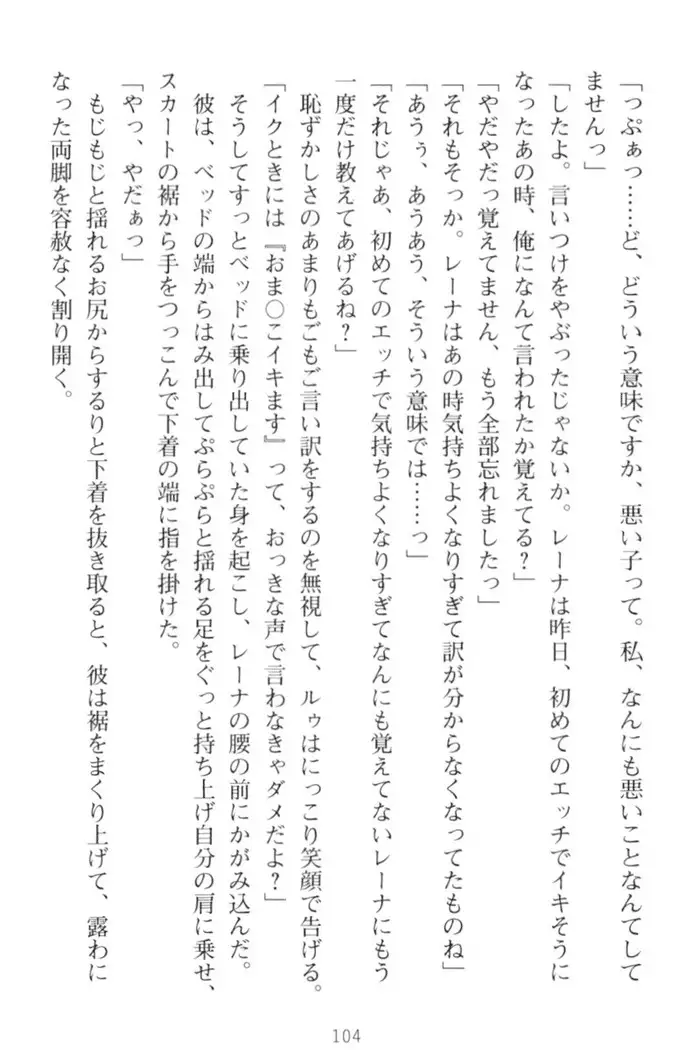 「っぷぁっ……ど、どういう意味ですか、悪い子って。私、なんにも悪いことなんてして
ませんっ」
「したよ。言いつけをやぶったじゃないか。レーナは昨日、初めてのエッチでイキそうに
なったあの時、俺になんて言われたか覚えてる?」
「やだやだっ覚えてません、もう全部忘れましたっ」
「それもそっか。レーナはあの時気持ちよくなりすぎて訳が分からなくなってたものね」
「あうぅ、あうあう、そういう意味では……っ」
「それじゃあ、初めてのエッチで気持ちよくなりすぎてなんにも覚えてないレーナにもう
一度だけ教えてあげるね?」
恥ずかしさのあまりもごもご言い訳をするのを無視して、ルゥはにっこり笑顔で告げる。
「イクときには『おま〇こイキます』って、おっきな声で言わなきゃダメだよ?」
そうしてすっとベッドに乗り出していた身を起こし、レーナの腰の前にかがみ込んだ。
彼は、ベッドの端からはみ出してぷらぷらと揺れる足をぐっと持ち上げ自分の肩に乗せ、
スカートの裾から手をつっこんで下着の端に指を掛けた。
「やっ、やだぁっ」
もじもじと揺れるお尻からするりと下着を抜き取ると、彼は裾をまくり上げて、露わに
なった両脚を容赦なく割り開く。
104